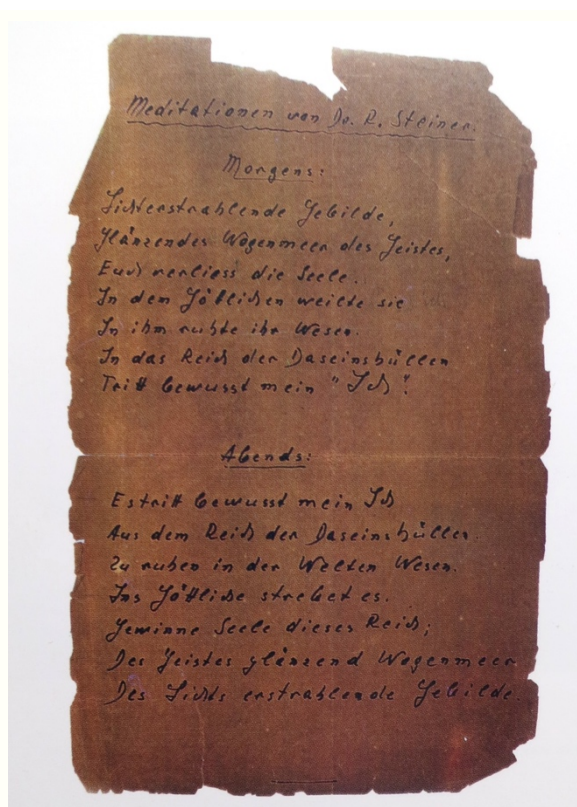 Meditationen von Dr. R. Steiner.
Morgens:
Lichterstrahlende Gebilde,
Glänzendes Wogenmeer des Geistes,
Euch verliess die Seele.
In dem Göttlichen weilte sie
In ihm ruhte ihr Wesen.
In das Reich der Daseinshüllen
Tritt bewusst mein "Ich".
Abends:
Es tritt bewusst mein Ich
Aus dem Reich der Daseinshüllen.
Zu ruhen in der Welten Wesen.
Ins Göttliche strebet es.
Gewinne Seele dieses Reich;
Des Geistes glänzend Wogenmeer
Des Lichts erstrahlende Gebilde.